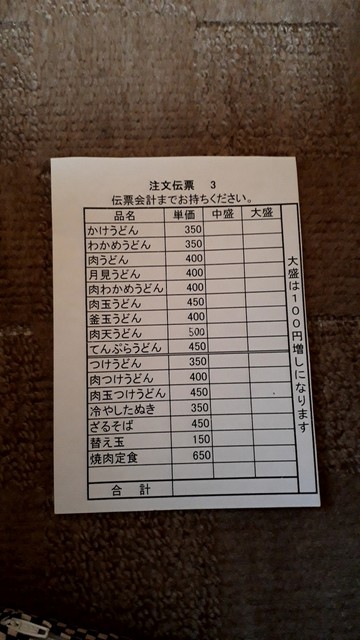 注文伝票 3
伝票会計までお持ちください。
品名 単価 中盛 大盛
かけうどん 350
わかめうどん 350
肉うどん 400
月見うどん 400
肉わかめうどん 400
肉玉うどん 450
釜玉うどん 400
肉天うどん 500
てんぷらうどん 450
つけうどん 350
肉つけうどん 400
肉玉つけうどん 450
冷やしたぬき 350
ざるそば 450
替え玉 150
焼肉定食 650
合計
大盛は100円増しになります